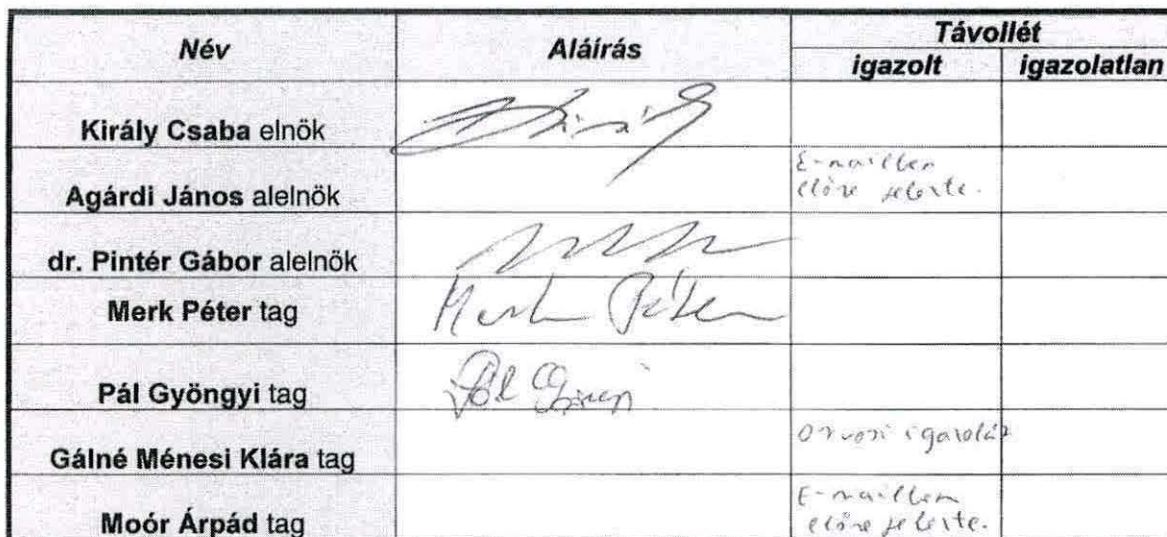 Név Aláírás Távollét
igazolt igazolatlan
Király Csaba elnök
Agárdi János alelnök E-mailben
előre jelezte.
dr. Pintér Gábor alelnök
Merk Péter tag Merk Péter
Pál Gyöngyi tag Pál Gyöngyi
Gálné Ménesi Klára tag Orvosi igazolás
Moór Árpád tag E-mailben
előre jelezte.